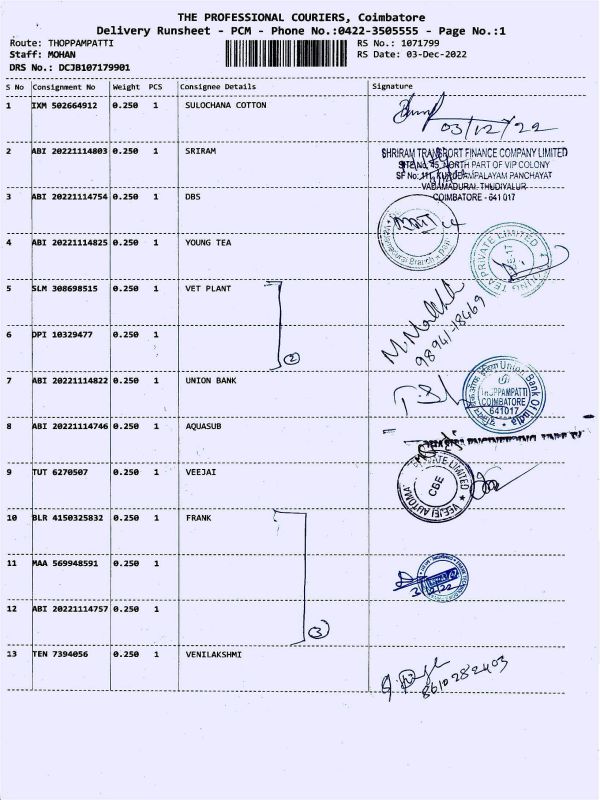 THE PROFESSIONAL COURIERS, Coimbatore
Delivery Runsheet - PCM - Phone No.:0422-3505555 - Page No.:1
Route: THOPPAMPATTI RS No.: 1071799
Staff: MOHAN RS Date: 03-Dec-2022
DRS No.: DCJB107179901
S No Consignment No Weight PCS Consignee Details Signature
1 IXM 502664912 0.250 1 SULOCHANA COTTON
03/12/22
2 ABI 20221114803 0.250 1 SRIRAM
SHRIRAM TRANSPORT FINANCE COMPANY LIMITED
SITE No. 45, NORTH PART OF VIP COLONY
SF No: 111, KURUDAMPALAYAM PANCHAYAT
VADAMADURAI, THUDIYALUR
COIMBATORE - 641 017
3 ABI 20221114754 0.250 1 DBS
4 ABI 20221114825 0.250 1 YOUNG TEA
YOUNG TEA PRIVATE LIMITED
5 SLM 308698515 0.250 1 VET PLANT
6 DPI 10329477 0.250 1
2
98941-18469
7 ABI 20221114822 0.250 1 UNION BANK
Union Bank Of India
THOPPAMPATTI
COIMBATORE
641017
8 ABI 20221114746 0.250 1 AQUASUB
9 TUT 6270507 0.250 1 VEEJAI
CBE
10 BLR 4150325832 0.250 1 FRANK
11 MAA 569948591 0.250 1
12 ABI 20221114757 0.250 1
3
13 TEN 7394056 0.250 1 VENILAKSHMI
8610282403